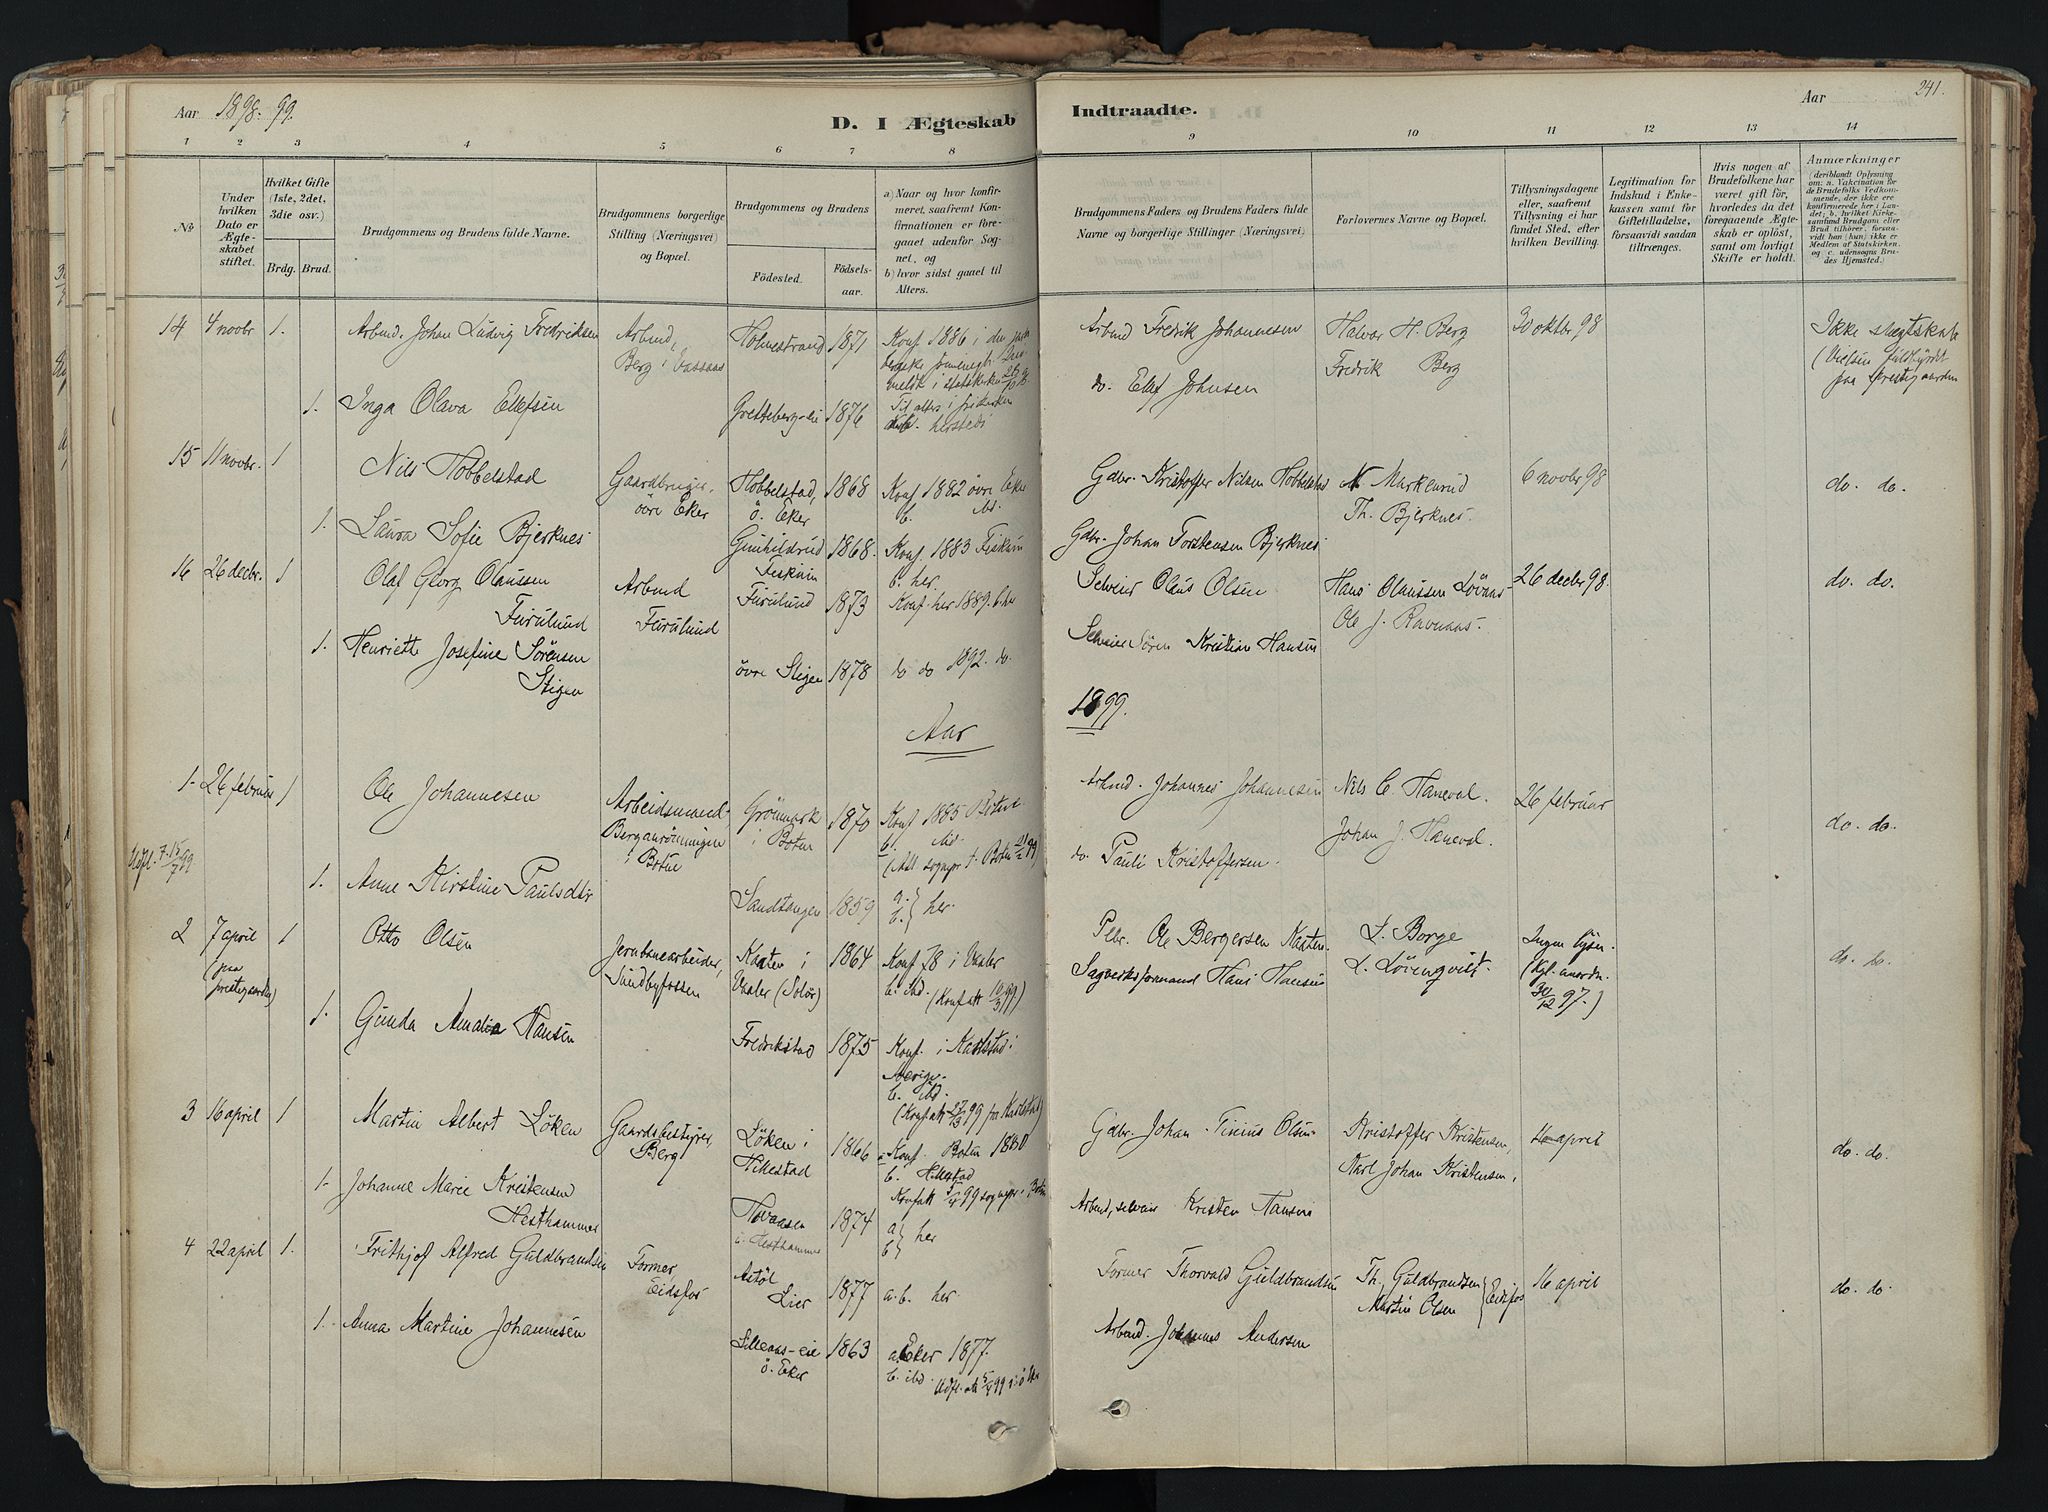 Aar 1898. 99.
D. I Ægteskab Indtraadte.
Aar
241.
1 2 3 4 5 6 7 8 9 10 11 12 13 14
№
Under hvilken Dato er Ægteskabet stiftet.
Hvilket Gifte (1ste, 2det, 3die osv.)
Brdg. Brud.
Brudgommens og Brudens fulde Navne.
Brudgommens borgerlige Stilling (Næringsvei) og Bopæl.
Brudgommens og Brudens
Födested. Födsels-aar.
a) Naar og hvor konfirmeret, saafremt Konfirmationen er foregaaet udenfor Sognet, og
b) hvor sidst gaaet til Alters.
Brudgommens Faders og Brudens Faders fulde Navne og borgerlige Stillinger (Næringsvei)
Forlovernes Navne og Bopæl.
Tillysningsdagene eller, saafremt Tillysning ei har fundet Sted, efter hvilken Bevilling.
Legitimation for Indskud i Enkekassen samt for Giftetilladelse, forsaavidt saadan tiltrænges.
Hvis nogen af Brudefolkene har været gift för, hvorledes da det foregaaende Ægteskab er oplöst, samt om lovligt Skifte er holdt.
Anmærkninger
(deriblandt Oplysning om: a. Vakcination för de Brudefolks Vedkommende, der ikke ere konfirmerede her i Landet; b. hvilket Kirkesamfund Brudgom eller Brud tilhörer, forsaavidt han (hun) ikke er Medlem af Statskirken. og c. udensogns Brudes Hjemsted.)
14 4 novbr 1. Arbmd. Johan Ludvig Fredriksen Arbmd, Berg i Vassaas Holmestrand 1871 Konf 1886 i den
Arbmd Fredrik Johannesen Halvor H. Berg 30 oktbr 98 Ikke slægtskab
Fredrik Berg (Vielsen fuldbyrdet paa prestegaarden
1. Inga Olava Ellefsen Gretteberg-eie 1876 Til alters i frikirken
do. Elef Johnsen
15 11 novbr. 1 Nils Hobbelstad Gaardbruger, övre Eker Hobbelstad, ö. Eker 1868 Konf 1882 övre Eker b. ibd.
Gdbr. Kristoffer Nilsen Hobbelstad N. Markerud 6 novbr 98 do. do.
Th. Bjerknes.
1. Laura Sofie Bjerknes Gunhildrud Fiskum 1868. Konf. 1883 Fiskum b. her.
Gdbr. Johan Torstensen Bjerknes
16 26 decbr. 1 Olaf Georg Olaussen Furulund Arbmd Furulund Furulund 1873 Konf. her 1889. b. her
Selveier Olaus Olsen Hans Olaussen Lövaas 26 decbr 98. do. do.
Ole J. Ravnaas.
1. Henriette Josefine Sörensen Stigen övre Stigen 1878 do do 1892. do.
Selveier Sören Kristian Hansen
Aar 1899.
1. 26 februar 1 Ole Johannesen Arbeidsmand, Berganrönningen i Botne Grönmark i Botne 1870 Konf 1885 Botne b. ibd.
Arbmd. Johannes Johannesen Nils C. Haneval. 26 februar do. do.
Johan J. Haneval.
Udfl. 7. 15/7 99
1. Anne Kirstine Paulsdtr Sandtangen 1859 a. b. } her.
do. Pauli Kristoffersen.
2 7 april (paa prestegaarden) 1 Otto Olsen Jernbanearbeider, Sundbyfossen Kaaten i Vaaler (Solör) 1864 Konf 78 i Vaaler b. ibd. (Konfatt 10/3 99)
Pebr. Ole Bergersen Kaaten L. Borge Ingen lysn. (Kgl. anordn. 30/12 97.) do. do.
L. Lövenqvist.
1. Gunda Amalia Hansen Fredrikstad 1875 Konf. i Karlstad i Sverige. b. ibd. (Konfatt 27/3 99 fra Karlstad)
Sagverksformand Hans Hansen
3 16 april 1 Martin Albert Löken Gaardsbestyrer, Berg Löken i Hillestad 1866 Konf. Botne 1880 b. Hillestad
Gdbr. Johan Tinius Olsen Kristoffer Kristensen, 16 april do. do.
Karl Johan Kristensen.
1. Johanne Marie Kristensen Hesthammer Hovaasen u. Hesthammer 1874 a} b} her
Arbmd, selveier Kristen Hansen
4 22 april 1. Frithjof Alfred Guldbrandsen Former, Eidsfos Astöl Lier 1877 a. b. her.
Former Thorvald Guldbrandsen Th. Guldbrandsen Martin Olsen } Eidsfos 16 april do. do.
1. Anna Martine Johannesen Lilleaas-eie ö. Eker 1863 a. Eker 1877. b. ibd. Udfl. att 5/4 99 i ö Eker
Arbmd. Johannes Andersen